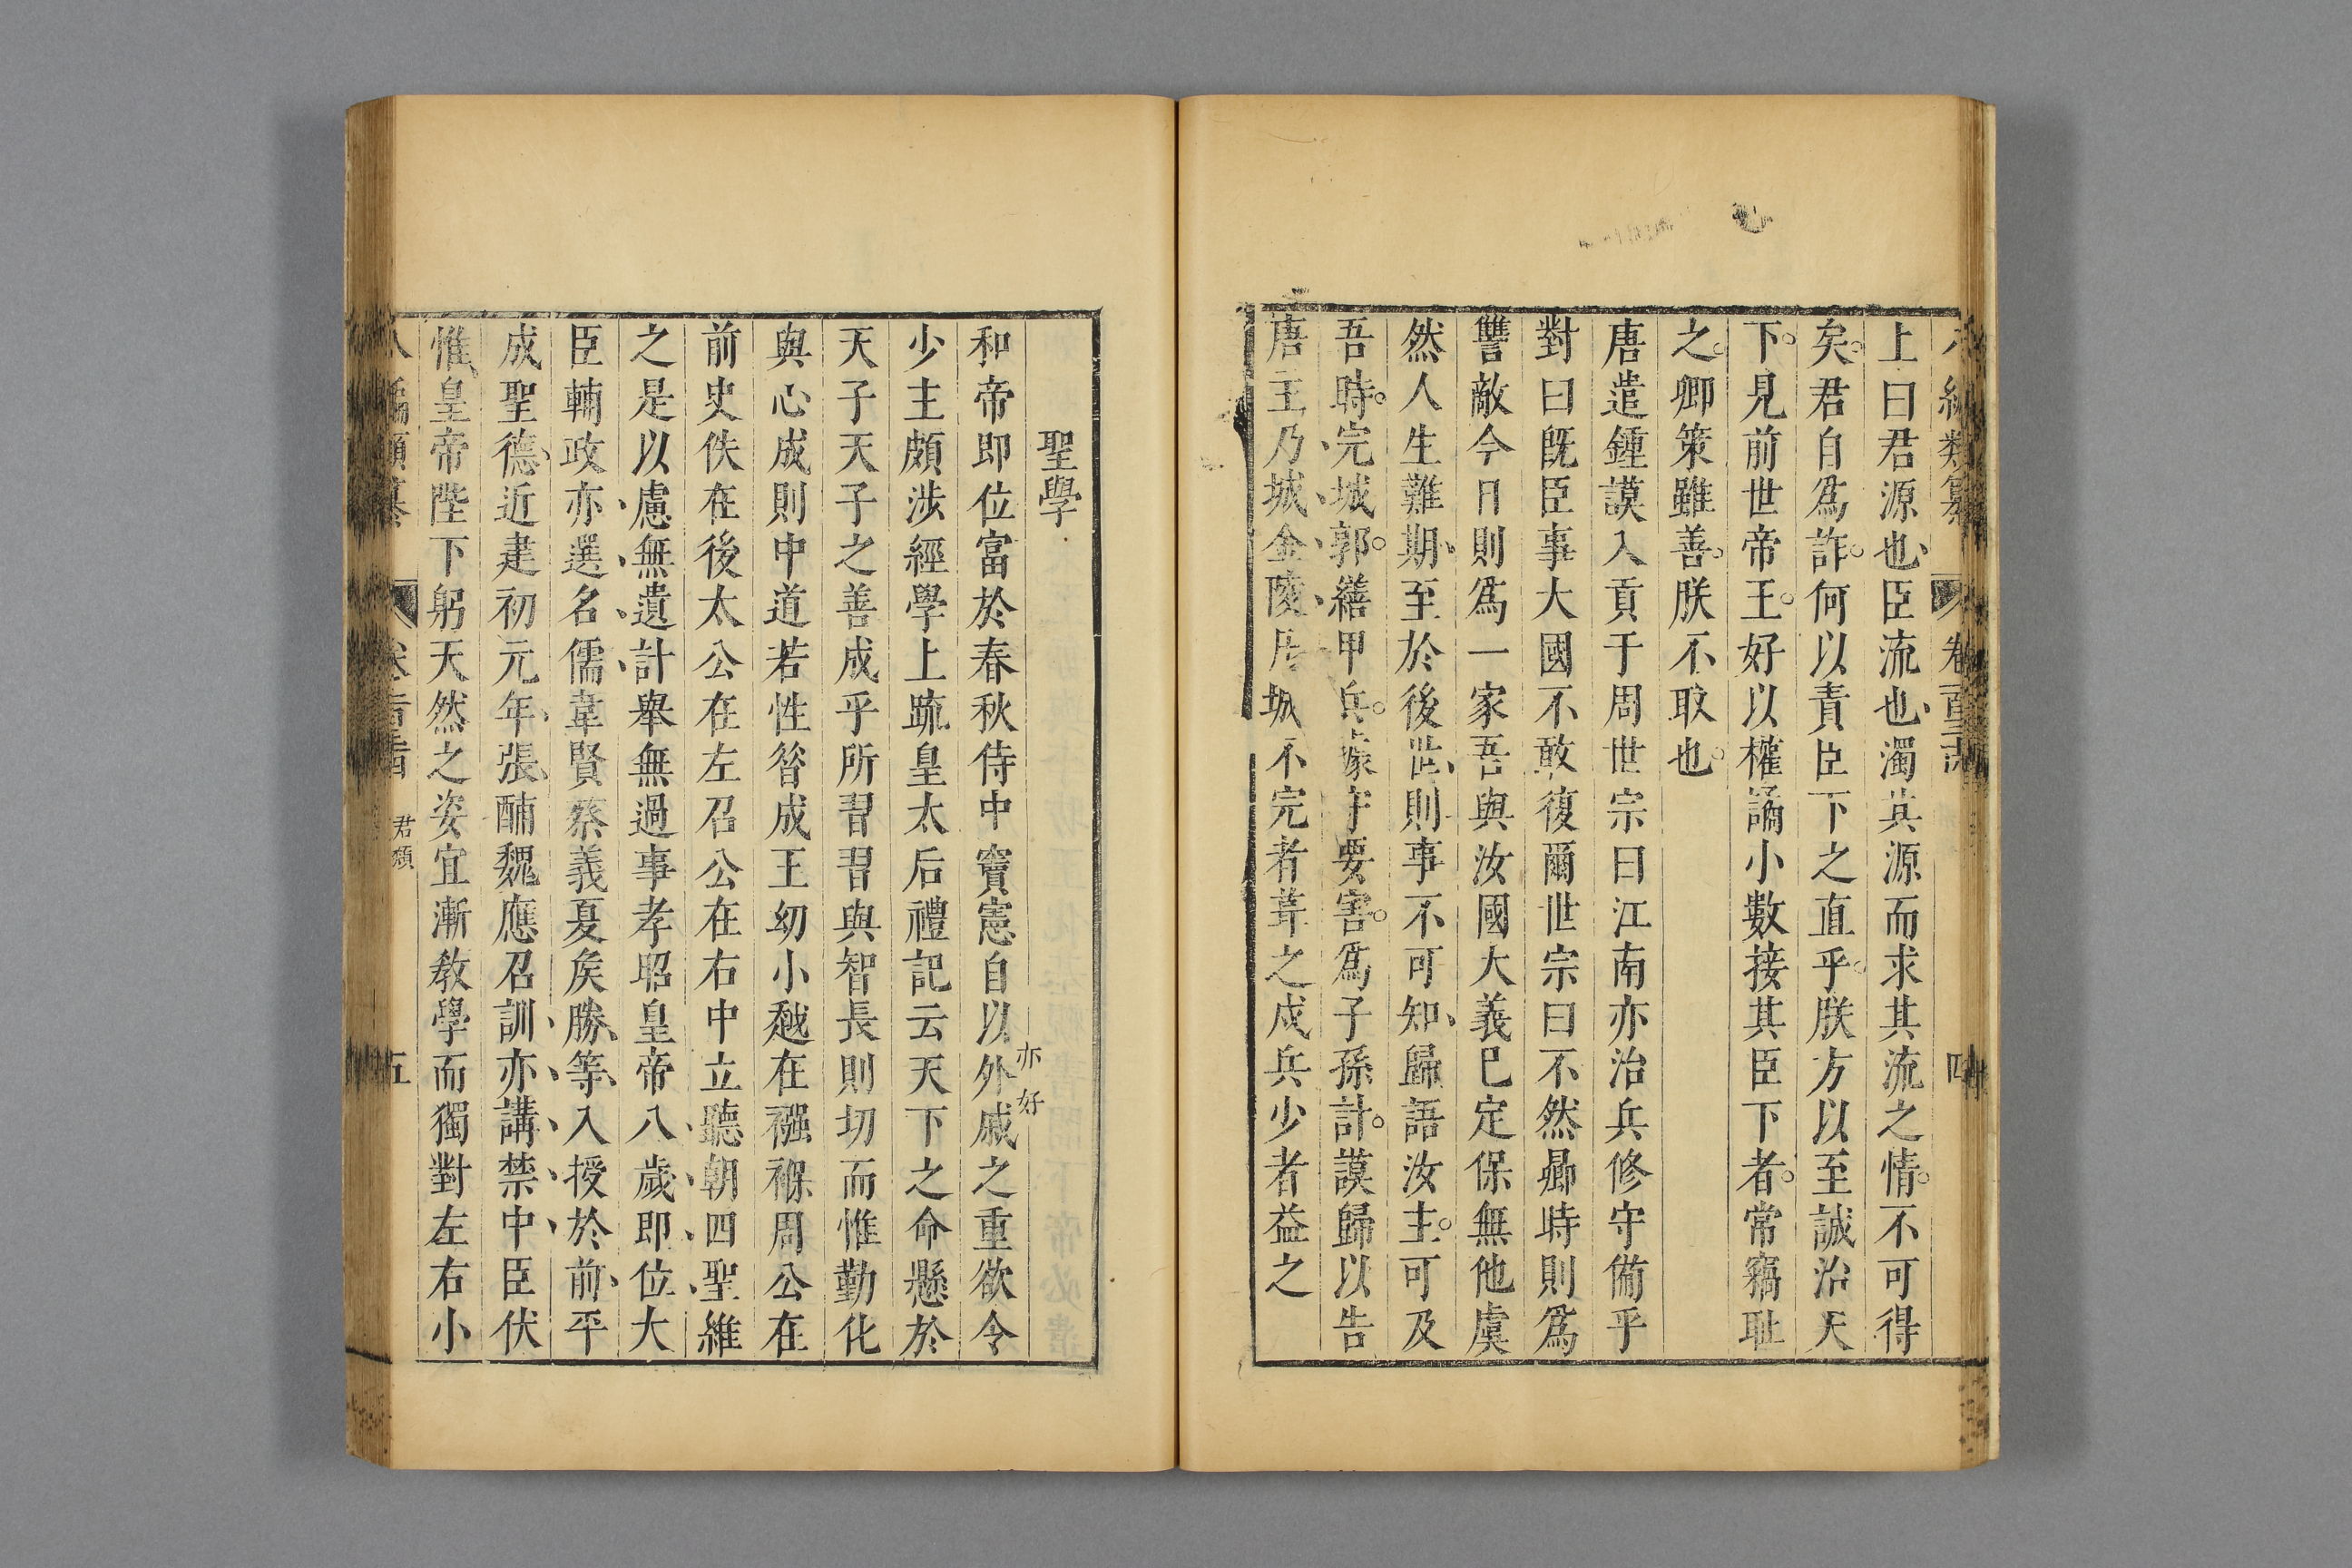 上曰君源也臣流也濁其源而求其流之情不可得
矣君自爲詐何以責臣下之直乎朕方以至誠治天
下見前世帝王好以權譎小數接其臣下者常竊耻
之卿策雖善朕不取也
唐遣鍾謨入貢于周世宗曰江南亦治兵修守備乎
對曰旣臣事大國不敢復爾世宗曰不然曏時則爲
讐敵今日則爲一家吾與汝國大義已定保無他虞
然人生難期至於後世則事不可知歸語汝主可及
吾時完城郭繕甲兵據守要害爲子孫計謨歸以告
唐主乃城金陵凡城不完者葺之戍兵少者益之
聖學
亦好
和帝即位富於春秋侍中竇憲自以外戚之重欲令
少主頗涉經學上疏皇太后禮記云天下之命懸於
天子天子之善成乎所習習與智長則切而惟勤化
與心成則中道若性昝成王幼小越在襁褓周公在
前史佚在後太公在左召公在右中立聽朝四聖維
之是以慮無遺計舉無過事孝昭皇帝八歲即位大
臣輔政亦選名儒韋賢蔡義夏矦勝等入授於前平
成聖德近建初元年張酺魏應召訓亦講禁中臣伏
惟皇帝陛下躬天然之姿宜漸敎學而獨對左右小
君類
五